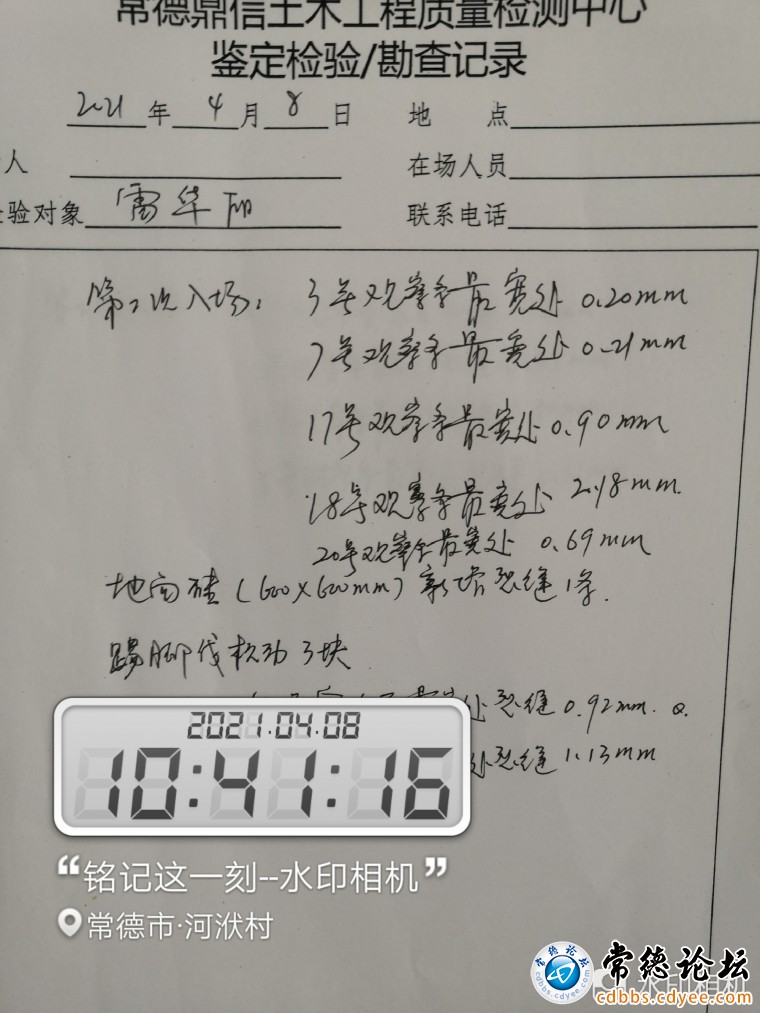 常德鼎信土木工程质量检测中心
鉴定检验/勘查记录
2021 年 4 月 8 日 地 点
人 在场人员
验对象 雷华 联系电话
第2次入场: 3号观察条最宽处 0.20mm
7号观察条最宽处 0.21mm
17号观察条最宽处 0.90mm
18号观察条最宽处 2.18mm
20号观察条最宽处 0.69mm
地面砖(600X600mm)新增裂缝1条.
踢脚线松动3块
处裂缝 0.92mm.
处裂缝 1.13mm
2021.04.08
10:41:16
“铭记这一刻--水印相机”
常德市·河洑村
常德论坛
水印相机
cdbbs.cdyee.com